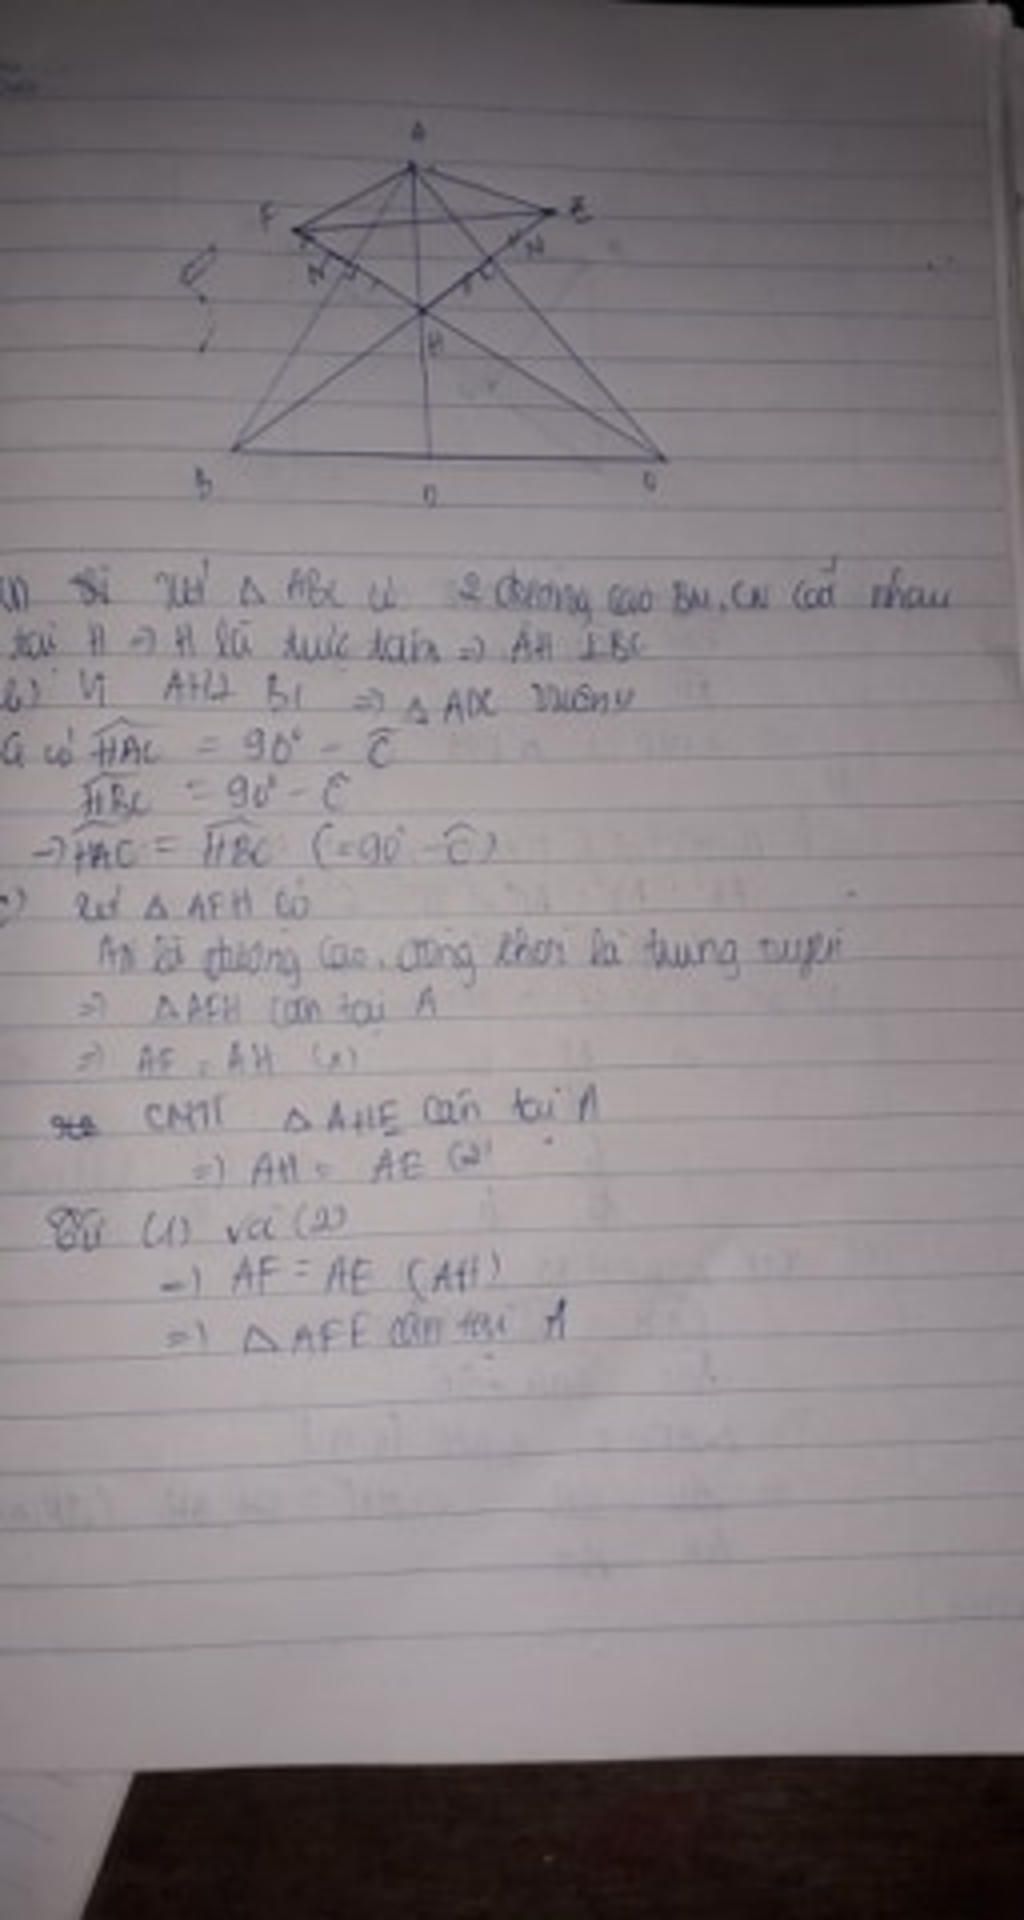 A
F
E
N
H
B
D
C
xét △ ABC có 2 đường cao BM, CN cắt nhau
tại H => H là trực tâm => AH ⊥ BC
b) Vì AH ⊥ BC => △ ADC vuông
có HAC = 90° - Ĉ
HBC = 90° - Ĉ
-> HAC = HBC (=90° - Ĉ)
c) xét △ AFH có
AN là đường cao, đồng thời là trung tuyến
=> △ AFH cân tại A
=> AF = AH (1)
CMTT △ AHE cân tại A
=> AH = AE (2)
Từ (1) và (2)
=> AF = AE (AH)
=> △ AFE cân tại A